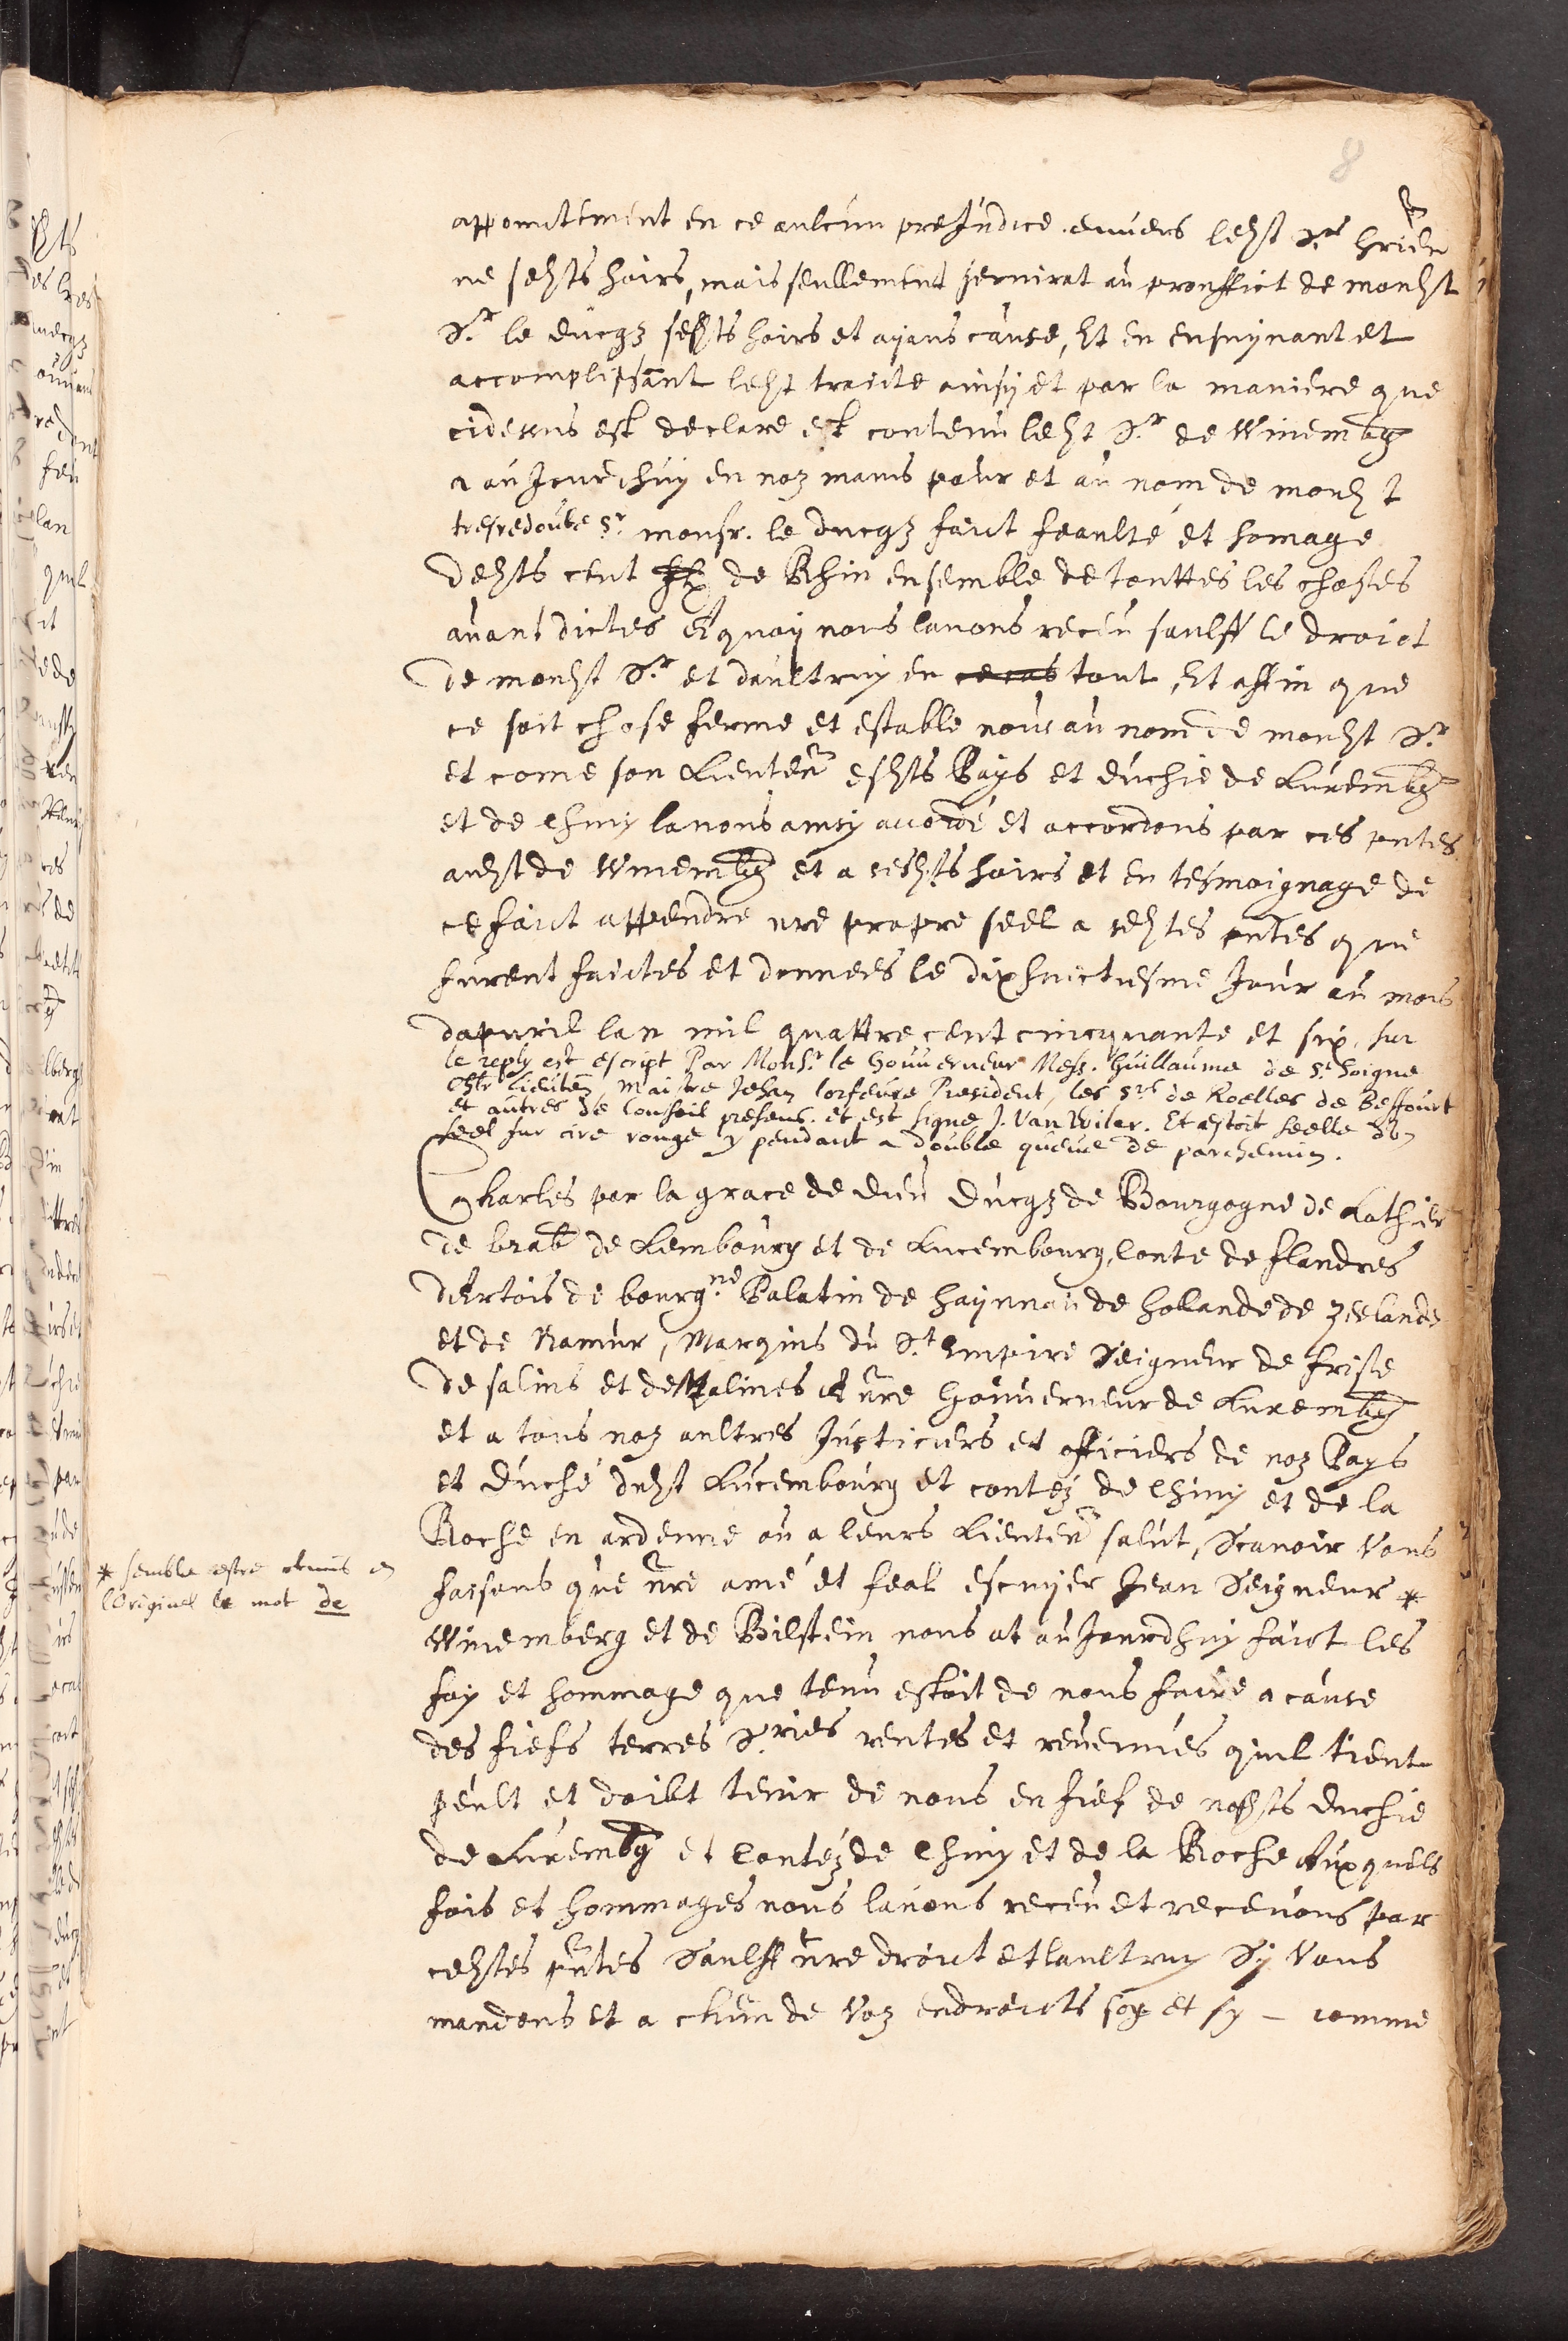 8
appoinctement en ce aulcun preJudice envers ledst Sr.
ne sesdts hoirs, mais seullement servirat au prouffict de mondst
Sr. le ducqz sesdts hoirs et ayans cause, Et en ensuyvant et
accomplissant ledst traicte ainsy et par la maniere que
cidessus est declare est contenu ledst Sr. de Winembg
a auJourdhuy en noz mains pour et au nom de mondst
tresredoube Sr. monsr. le ducqz faict feaulté et homage
desdts cent de Rhin ensemble de touttes les choses
avant dictes Aquoy nous lavons receu saulff le droict
de mondst Sr. et daultruy en ce cas tout, Et affin que
ce soit chose ferme et estable nous au nom de mondst Sr.
et come son Lieuten esdts Pays et duchie de Luxembg
et de Chiny lavons ainsy accordé et accordons par ces pntes
audst de Winembg et a sesdts hoirs et en tesmoignage de
ce faict appendre nre propre seel a cestes pntes que
furent faictes et donnees le dixhuictiesme Jour au mois
dapvril lan mil quattre cent cincquante et six, sur
le reply est escript Par Monsr. le Gouverneur Mess. Guillaume de St. Soigne
chlr Lieuten maistre Jehan lorfevre President, les Srs de Roelles de Beffourt
et autres de Conseil presens. et est signe J. Van Wiler. Et estoit seelle dun
seel sur cire rouge y pendant a double queue de parchemin.
Charles par la grace de dieu ducqz de Bourgogne de Lothier
de brab de Lembourg et de Lucembourg, Conte de flandres
dArtois de bourgne. Palatin de haynnau de hollande de zeelande
et de Namur, Marquis du St. Empire Seigneur de frise
de salins et de Malines A nre Gouverneur de Luxembg
et a tous noz aultres Justiciers et officiers de noz Pays
et duché dudst Lucembourg et contez de Chiny et de la
Roche en ardenne ou a leurs Lieuten salut, Scavoir Vous
faisons que nre amé et feal escuyer Jean Seigneur *
Winemberg et de Bilstein nous at auJourdhuy faict les
foy et hommage que tenu estoit de nous faire a cause
des fiefs terres Sries rentes et revenues quil tient
peult et doibt tenir de nous en fief de nosdts duchie
de Luxembg et Contéz de Chiny et de la Roche Auxquels
fois et hommages nous lavons receu et recevons par
cestes pntes Saulff nre droict et laultruy Sy Vous
mandons et a chun de Voz endroicts soy et sy - comme
* semble estre obmis en
lOriginel le mot de